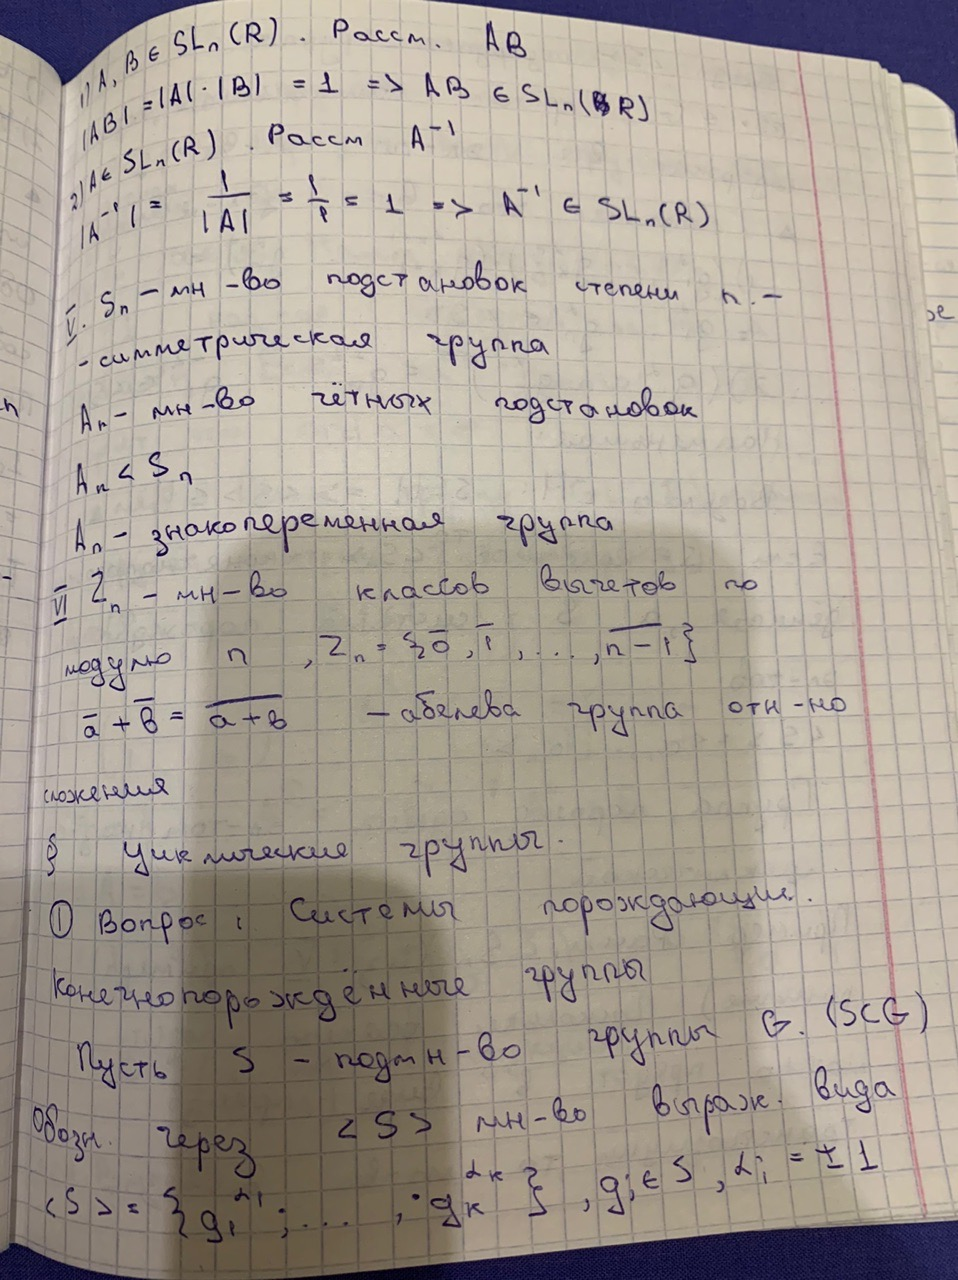 1) A, B ∈ SLₙ(R). Рассм. AB
|AB| = |A|·|B| = 1 => AB ∈ SLₙ(R)
2) A ∈ SLₙ(R). Рассм A⁻¹
|A⁻¹| = 1/|A| = 1/1 = 1 => A⁻¹ ∈ SLₙ(R)
V. Sₙ – мн-во подстановок степени n. –
- симметрическая группа
Aₙ – мн-во чётных подстановок
Aₙ < Sₙ
Aₙ – знакопеременная группа
VI Zₙ – мн-во классов вычетов по
модулю n, Zₙ = {0̅, 1̅, ..., n̅-̅1̅}
a̅ + b̅ = a̅+̅b̅ – абелева группа отн-но
сложения
§ Циклические группы.
① Вопрос: Системы порождающих.
Конечнопорождённые группы
Пусть S – подмн-во группы G. (S⊂G)
Обозн. через <S> мн-во выраж. вида
<S> = {g₁^α₁; ..., ·gₖ^αₖ}, gᵢ ∈ S, αᵢ = ±1